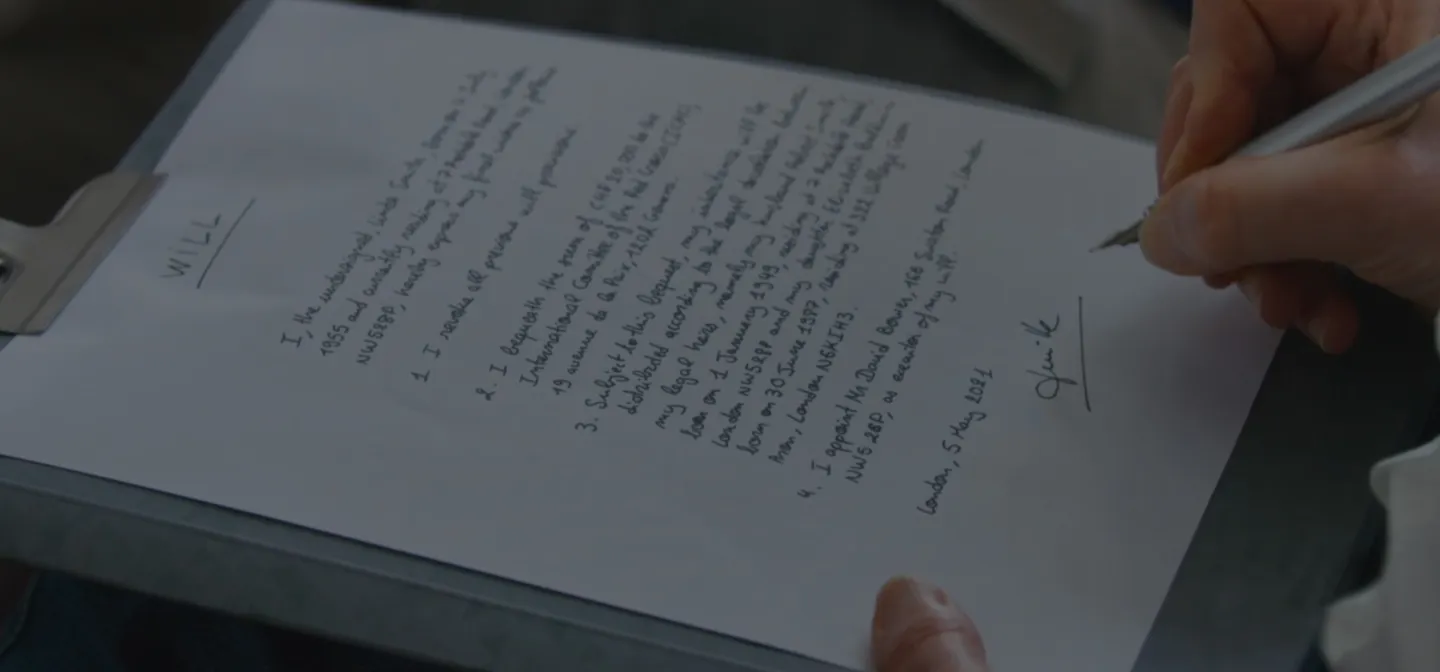 WILL
I, the undersigned, Linda Smith, born on
1955 and currently residing at 7
NW52BP, hereby express my final wishes
1 I revoke all previous will provisions
2. I bequeath the sum of CHF 20,000 to the
International Comittee of the Red Cross (ICRC),
19 avenue de la Paix, 1202 Geneva.
3. Subject to this bequest, my inheritance will be
distributed according to the legal devolution between
my legal heirs, namely my husband
born on 1 January 1949, residing at 7
London NW52BP and my daughter Elizabeth
born on 30 June 1977, residing at 322 Village
London N6K1H3.
4. I appoint Mr David Bower, 168 Road, London
NW5 2BP, as executor of my will.
London, 5 May 2021